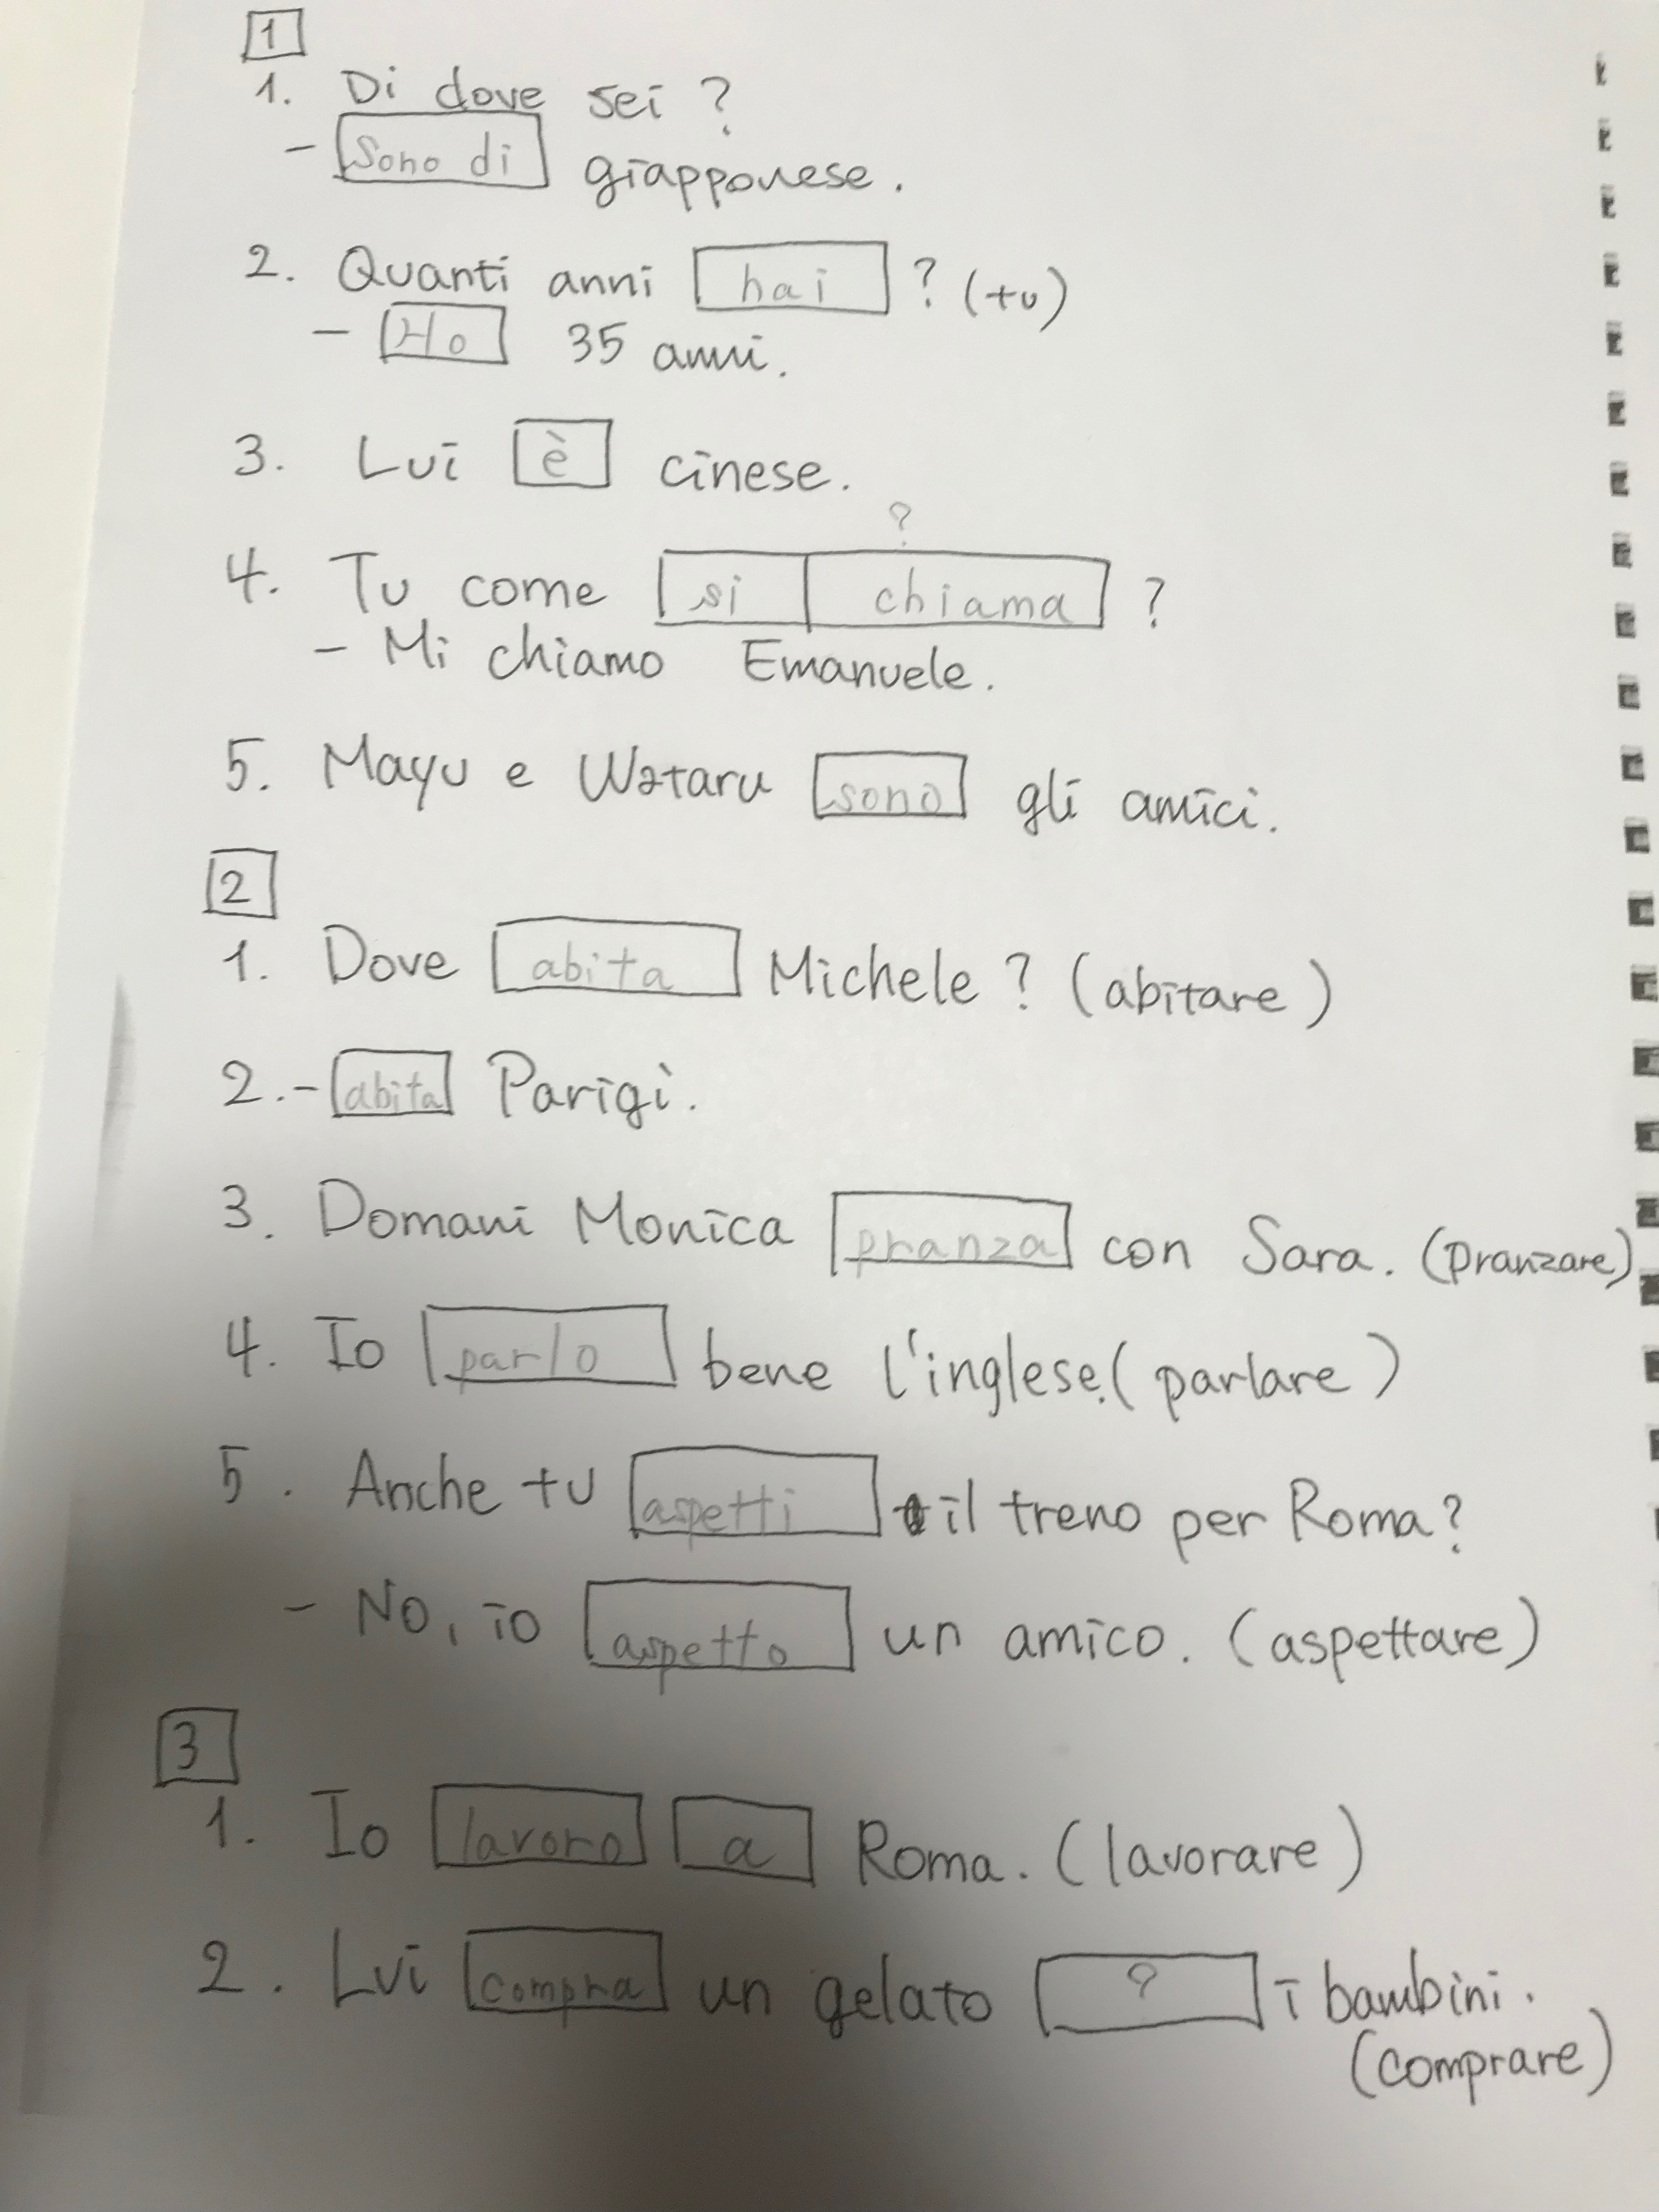 1
1. Di dove sei ?
- Sono di giapponese.
2. Quanti anni hai ? (tu)
- Ho 35 anni.
3. Lui è cinese.
?
4. Tu come si chiama ?
- Mi chiamo Emanuele.
5. Mayu e Wataru sono gli amici.
2
1. Dove abita Michele ? (abitare)
2. - abita Parigi.
3. Domani Monica pranza con Sara. (pranzare)
4. Io parlo bene l'inglese. (parlare)
5. Anche tu aspetti il treno per Roma?
- No, io aspetto un amico. (aspettare)
3
1. Io lavoro a Roma. (lavorare)
2. Lui compra un gelato ? i bambini.
(comprare)